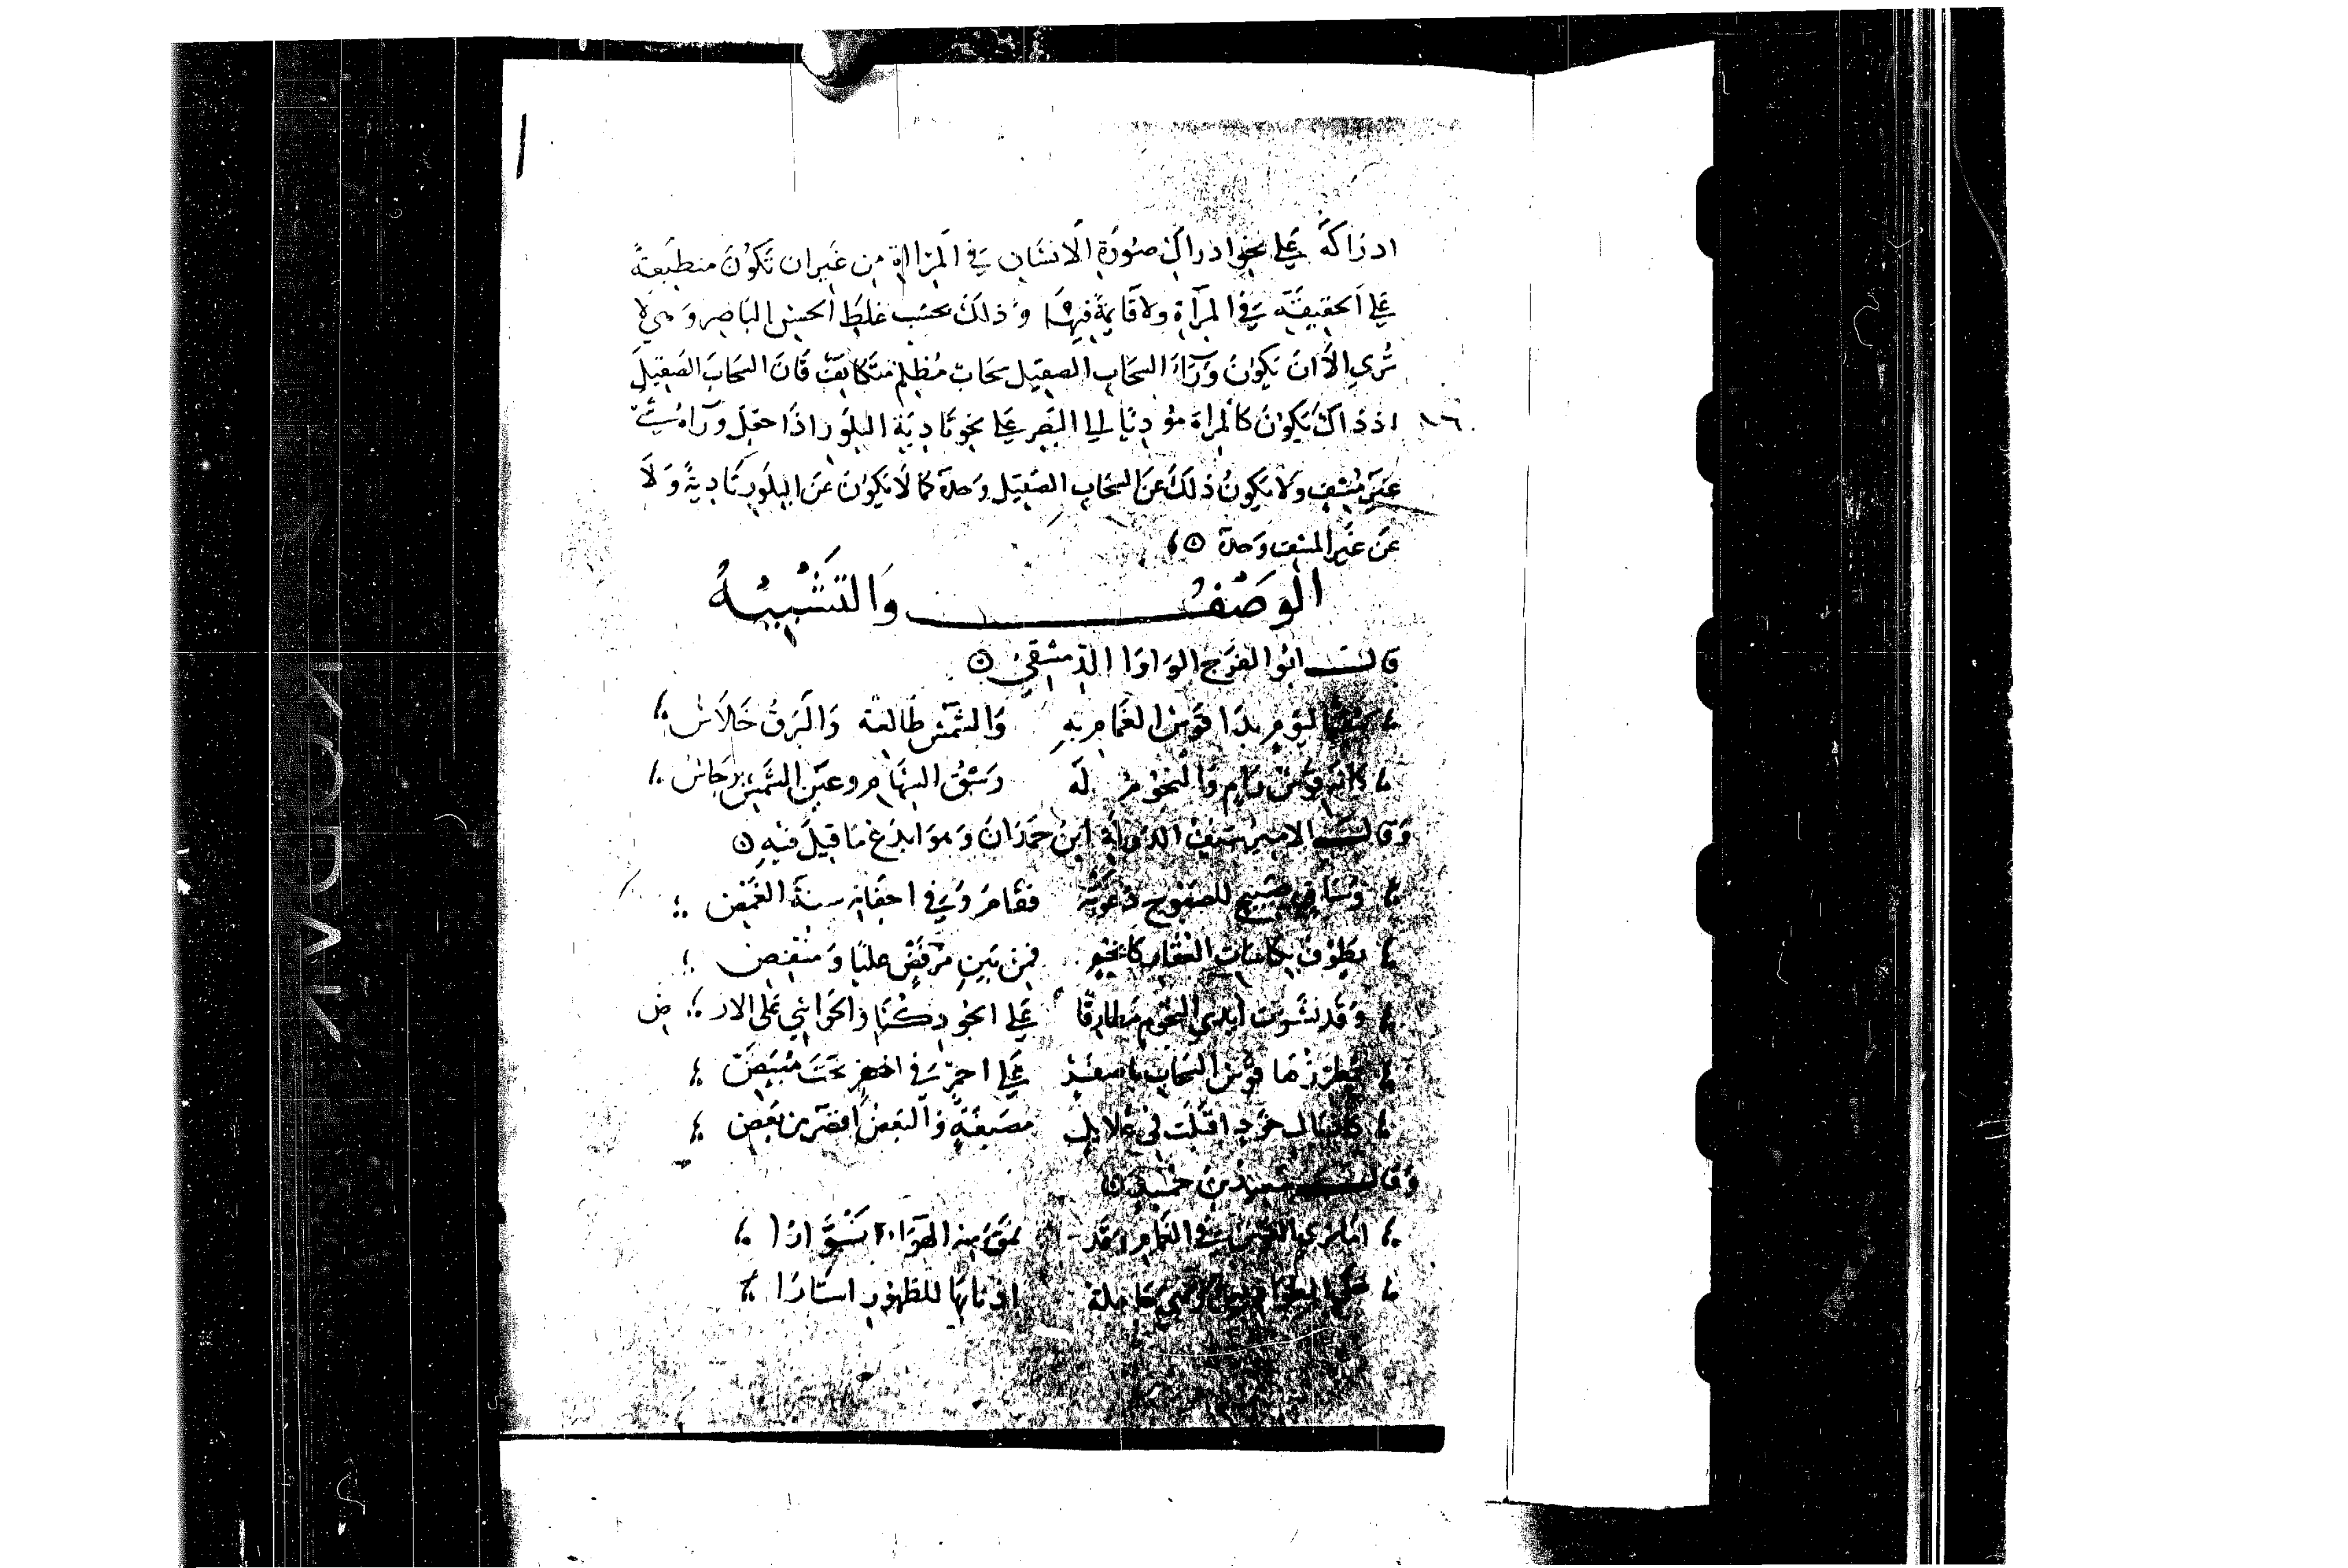 ادراكه على نحو ادراك صورة الانسان في المراة من غير ان تكون منطبعة
على الحقيقة في المرآة ولا قايمة فيها وذلك بحسب غلط الحس الباصر وهي لا
ترى الا ان يكون ورآء السحاب الصقيل سحاب مظلم متكاثف فان السحاب الصقيل
اذ ذاك يكون كالمراة مؤديا الى البصر على نحو تادية البلور اذا جعل ورآه شيء
غير مشف ولا يكون ذلك عن السحاب الصقيل وحده كما لا يكون عن البلور تادية ولا
عن غير المشف وحده
الوصف والتشبيه
قال ابو الفرج الواوا الدمشقي
ليوم بدا قوس الغمام به والشمس طالعة والبرق خلاس
كانه قوس رام والنجوم له رشق السهام وعين الشمس برجاس
وقال الامير سيف الدولة ابن حمدان وهو ابدع ما قيل فيه
وساق صبيح للصبوح دعوته فقام وفي اجفانه سنة الغمض
يطوف بكاسات العقار كانجم فمن بين مرفض علينا ومنفض
وقد نشرت ايدي النجوم مطارفا على الجو دكنا والحواشي على الارض
يطرزها قوس السحاب باصفر على احمر في اخضر تحت مبيض
كاذيال خود اقبلت في غلايل مصبغة والبعض اقصر من بعض
وقال سعيد بن
اما ترى القوس في الغمام وقد نمق منه الهواء نوارا
للظهور استارا